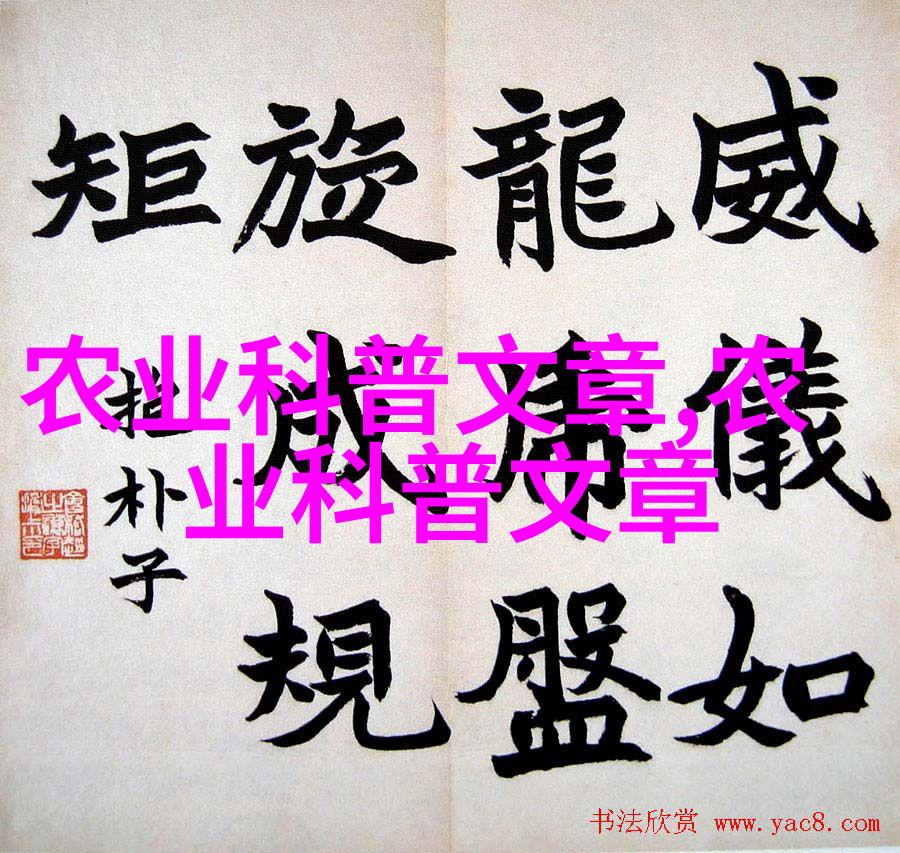 威儀如
龍盤
旋成規
矩
朴子
农业科普文章,农
业科普文章
书法欣赏 www.yac8.com